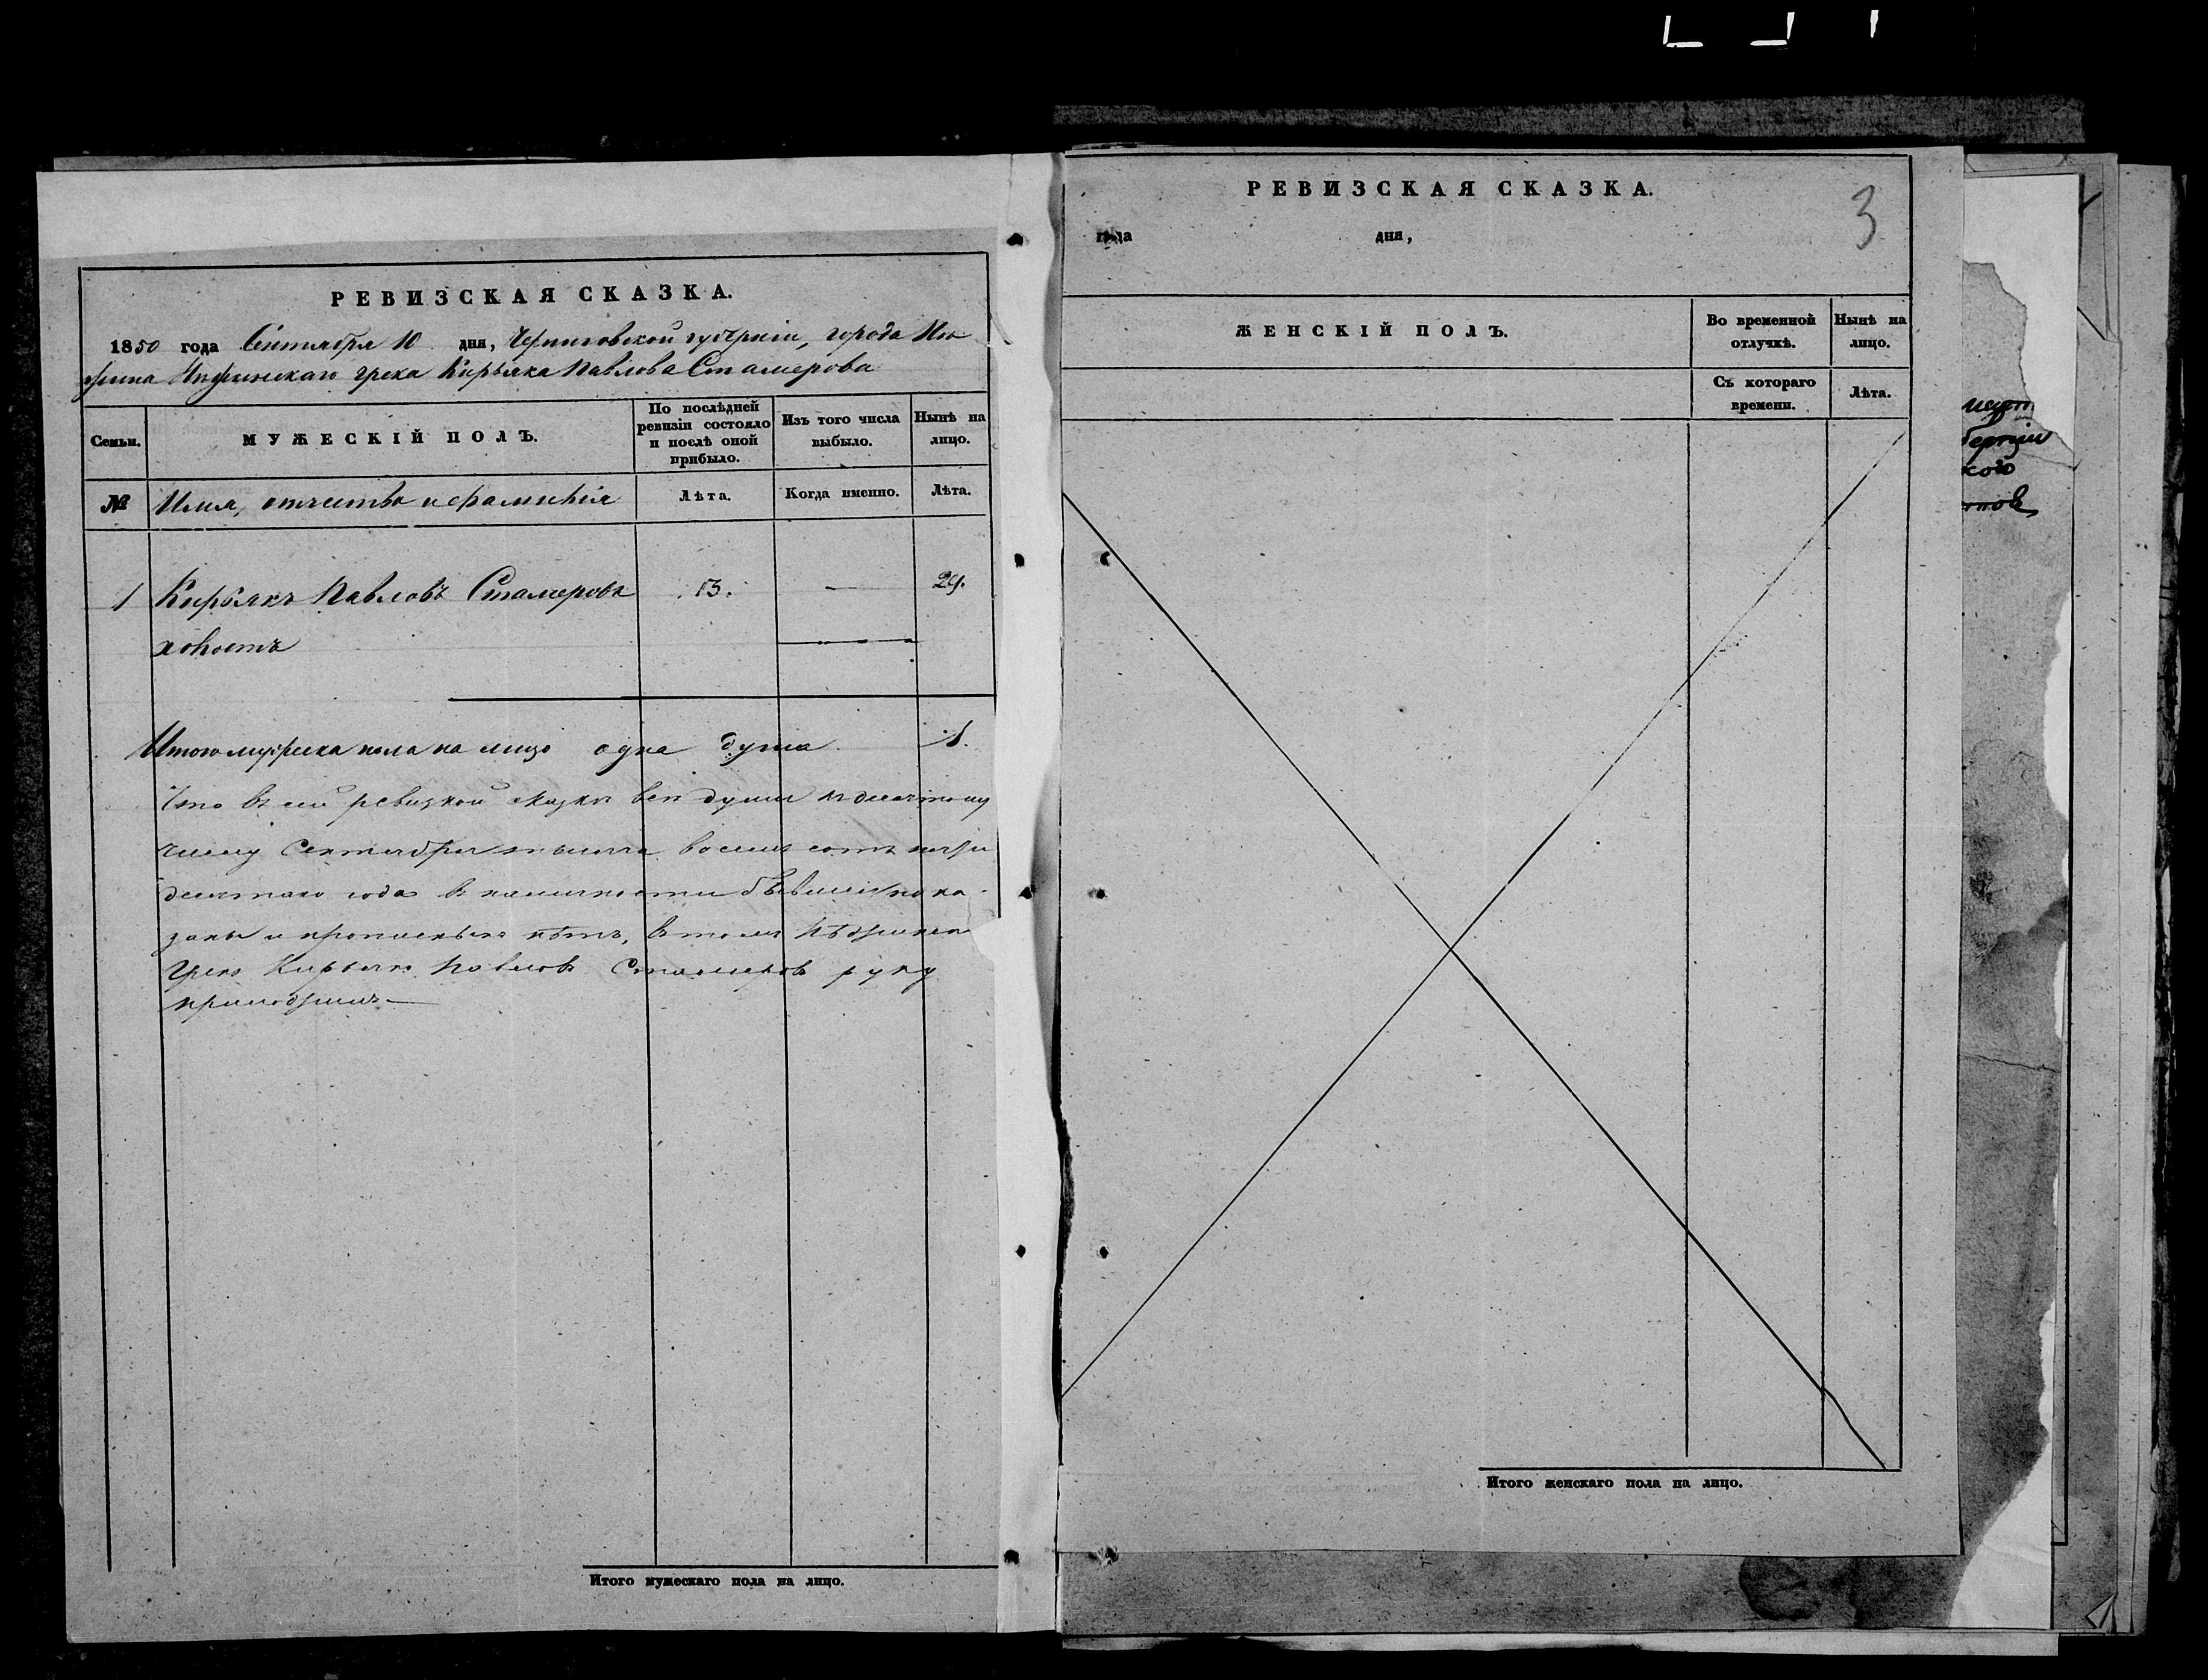 РЕВИЗСКАЯ СКАЗКА.
1850 года Сентября 10 дня, Черниговской губерніи, города Нѣ
жина Нѣжинскаго грека Кирьяка Павлова Стамерова
Семьи.
МУЖЕСКІЙ ПОЛЪ.
По послѣдней ревизіи состояло и послѣ оной прибыло.
Изъ того числа выбыло.
Нынѣ на лицо.
№
Имя, отчество и фамилія
Лѣта.
Когда именно.
Лѣта.
1 Кирьякъ Павловъ Стамеровъ 13. — 29.
холостъ
Итого мужеска пола на лицо одна душа 1.
Что въ сей ревизкой сказки всѣ души к десятому
числу Сентября тысяча восемь сотъ пятьи
десятаго года в наличности бывшія пока-
заны и прописныхъ нѣтъ, въ томъ Нѣжинскій
Грекъ Кирьякъ Павловъ Стамеров руку
приложилъ —
Итого мужескаго пола на лицо.
РЕВИЗСКАЯ СКАЗКА.
3
года дня,
ЖЕНСКІЙ ПОЛЪ.
Во временной отлучкѣ.
Нынѣ на лицо.
Съ котораго времени.
Лѣта.
Итого женскаго пола на лицо.